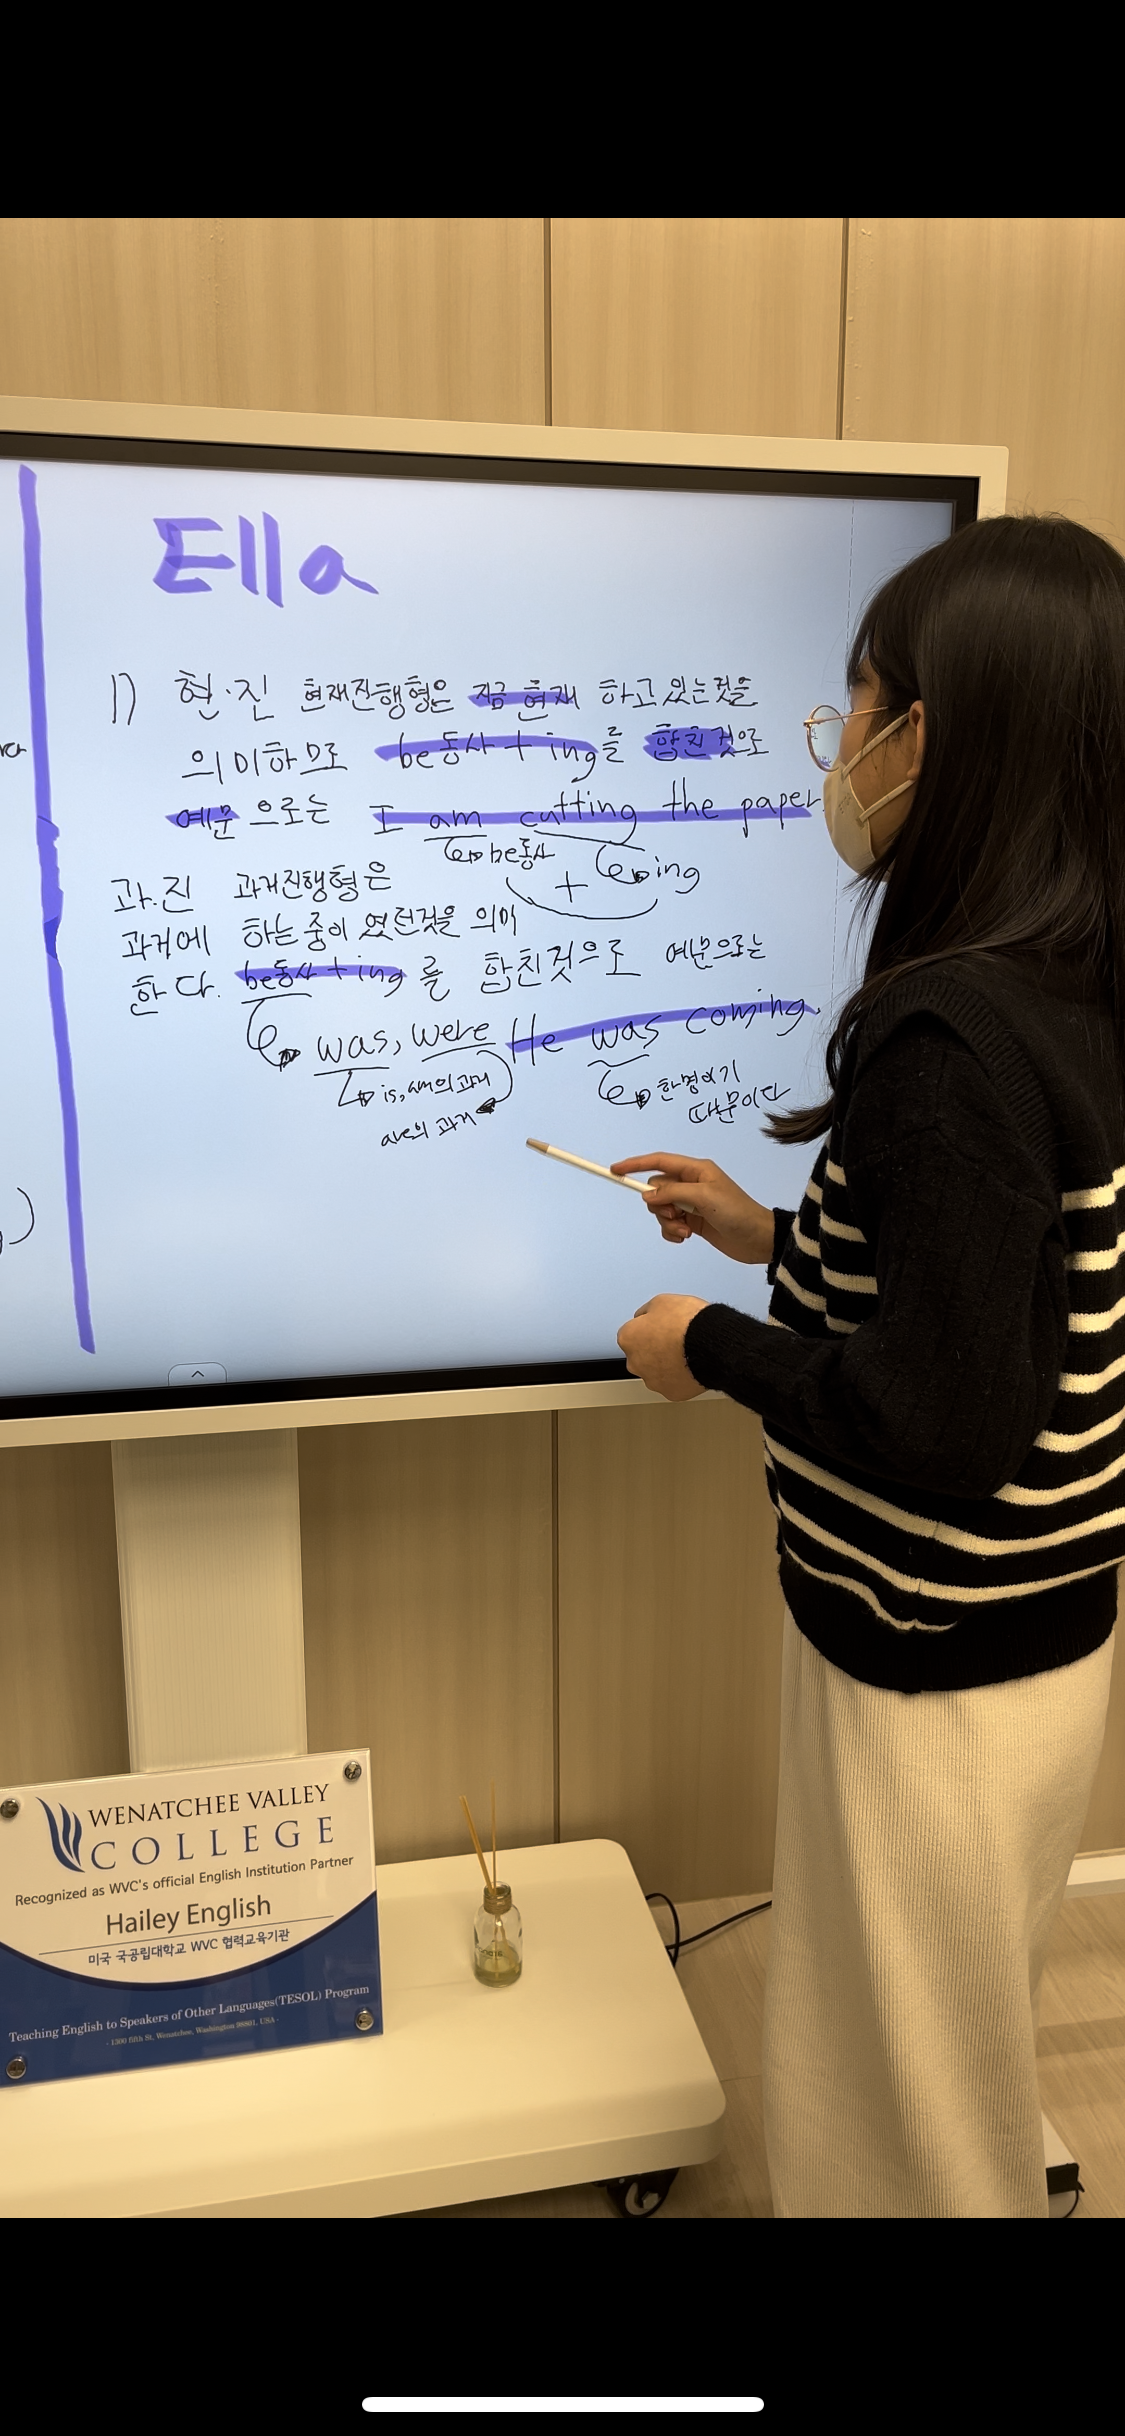 Ella
1) 현.진 현재진행형은 지금 현재 하고 있는것을
의미하므로 be동사 + ing를 합친것으로
예문으로는 I am cutting the paper.
be동사 + ing
과.진 과거진행형은
과거에 하는중이 였던것을 의미
한다. be동사 + ing를 합친것으로 예문으로는
was, were He was coming.
is, am의 과거
are의 과거
한명이기
때문이다
WENATCHEE VALLEY
COLLEGE
Recognized as WVC's official English Institution Partner
Hailey English
미국 국공립대학교 WVC 협력교육기관
Teaching English to Speakers of Other Languages(TESOL) Program
- 1300 fifth St. Wenatchee, Washington 98801, USA -